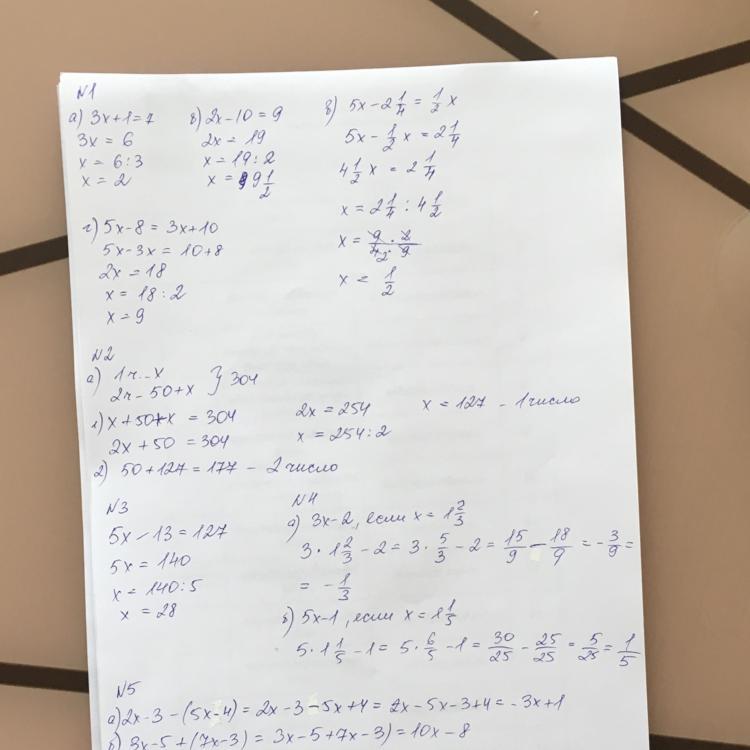 N1
а) 3x+1=7
3x = 6
x = 6:3
x = 2
б) 2x-10 = 9
2x = 19
x = 19:2
x = 9 1/2
в) 5x - 2 1/4 = 1/2 x
5x - 1/2 x = 2 1/4
4 1/2 x = 2 1/4
x = 2 1/4 : 4 1/2
x = 9/4 · 2/9
x = 1/2
г) 5x-8 = 3x+10
5x-3x = 10+8
2x = 18
x = 18:2
x = 9
N2
а) 1ч - x
2ч - 50+x } 304
1) x+50+x = 304
2x+50 = 304
2x = 254
x = 254:2
x = 127 - 1 число
2) 50+127 = 177 - 2 число
N3
5x - 13 = 127
5x = 140
x = 140:5
x = 28
N4
а) 3x-2, если x = 1 2/3
3 · 1 2/3 - 2 = 3 · 5/3 - 2 = 15/9 - 18/9 = - 3/9 =
= - 1/3
б) 5x-1, если x = 1 1/5
5 · 1 1/5 - 1 = 5 · 6/5 - 1 = 30/25 - 25/25 = 5/25 = 1/5
N5
а) 2x-3-(5x-4) = 2x-3-5x+4 = 2x-5x-3+4 = -3x+1
б) 3x-5+(7x-3) = 3x-5+7x-3 = 10x-8